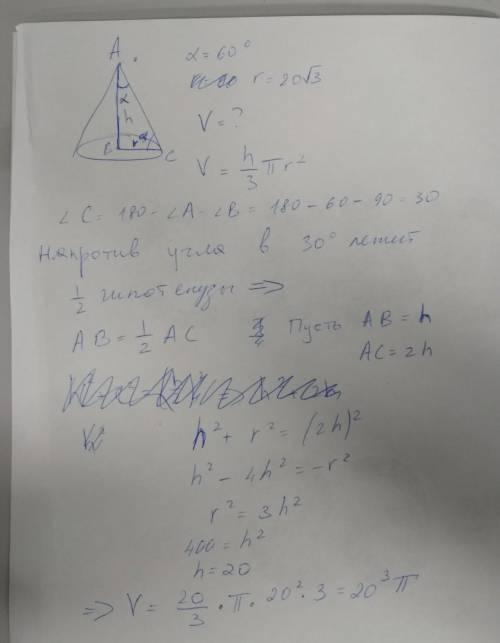 A
α
h
B
r
C
α = 60°
r = 20√3
V = ?
V = h/3 π r²
∠C = 180 - ∠A - ∠B = 180 - 60 - 90 = 30
Напротив угла в 30° лежит
1/2 гипотенузы =>
AB = 1/2 AC Пусть AB = h
AC = 2h
h² + r² = (2h)²
h² - 4h² = -r²
r² = 3h²
400 = h²
h = 20
=> V = 20/3 · π · 20² · 3 = 20³ π